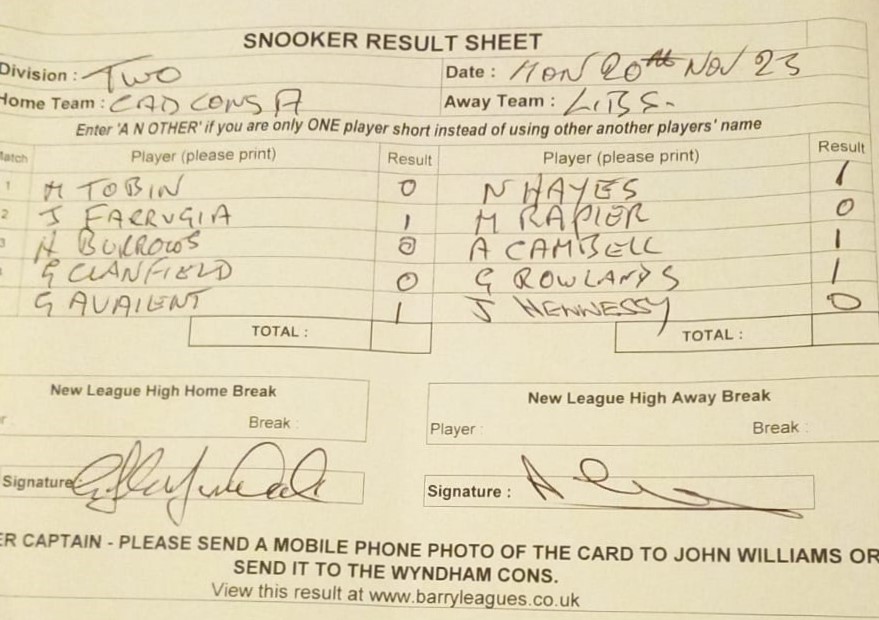 SNOOKER RESULT SHEET
Division : TWO Date : MON 20th NOV 23
Home Team : CAD CONS A Away Team : LIBS.
Enter 'A N OTHER' if you are only ONE player short instead of using other another players' name
Match Player (please print) Result Player (please print) Result
1 M TOBIN 0 N HAYES 1
2 J FARRUGIA 1 M RAPIER 0
3 BURROWS 0 A CAMBELL 1
G CLANFIELD 0 G ROWLANDS 1
G AVAILENT 1 J HENNESSY 0
TOTAL : TOTAL :
New League High Home Break New League High Away Break
Break : Player : Break :
Signature Signature :
ER CAPTAIN - PLEASE SEND A MOBILE PHONE PHOTO OF THE CARD TO JOHN WILLIAMS OR
SEND IT TO THE WYNDHAM CONS.
View this result at www.barryleagues.co.uk